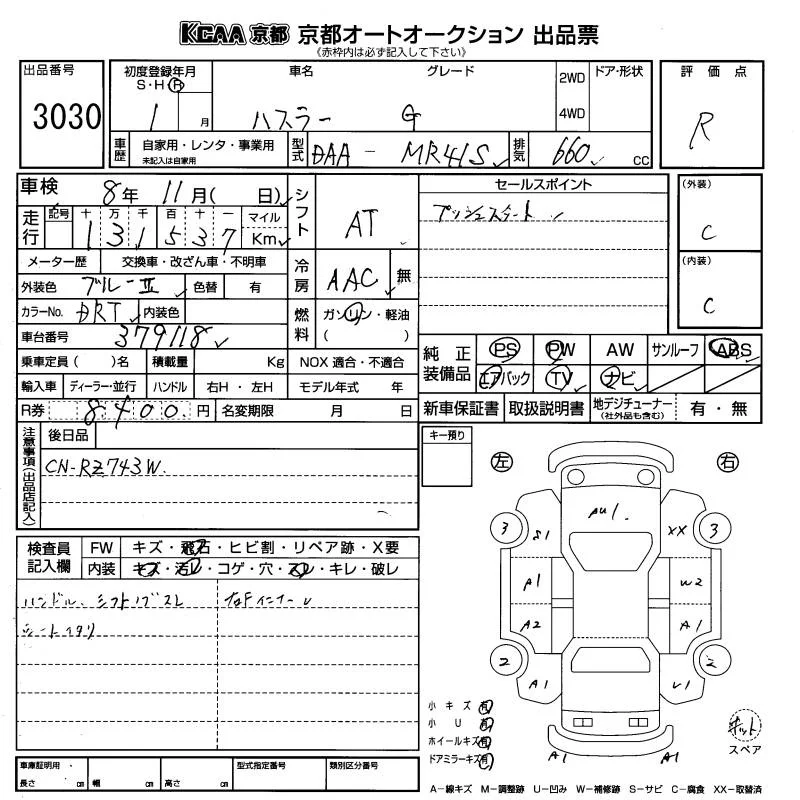 KCAA 京都 京都オートオークション 出品票
《赤枠内は必ず記入して下さい》
出品番号 3030
初度登録年月 S・H・R 1 月
車名 ハスラー
グレード G
2WD 4WD
ドア・形状
評価点 R
車歴 自家用・レンタ・事業用 未記入は自家用
型式 DAA - MR41S
排気 660 cc
車検 8年 11月( 日)
シフト AT
セールスポイント
プッシュスタート
(外装) C
(内装) C
走行 記号 十 万 千 百 十 一 マイル
1 3 1 5 3 7 Km
メーター歴 交換車・改ざん車・不明車
冷房 AAC 無
外装色 ブルーII 色替 有
カラーNo. DRT 内装色
燃料 ガソリン・軽油 ( )
車台番号 379118
純正装備品 PS PW AW サンルーフ ABS
エアバック TV ナビ
乗車定員 ( )名 積載量 Kg NOX 適合・不適合
輸入車 ディーラー・並行 ハンドル 右H・左H モデル年式 年
R券 8400 円 名変期限 月 日
新車保証書 取扱説明書 地デジチューナー (社外品も含む) 有・無
注意事項(出品店記入)
後日品
CN-RZ743W
キー預り
左 右
検査員記入欄
FW キズ・飛石・ヒビ割・リペア跡・X要
内装 キズ・汚レ・コゲ・穴・スレ・キレ・破レ
ハンドル、シフトノブスレ
シートヘタリ
AU1
3 S1 XX 3
A1 W2
A2 A1
2 A1 U1 2
A1 A1
小キズ 有
小U 有
ホイールキズ 有
ドアミラーキズ 有
スペア
車庫証明用 長さ cm 幅 cm 高さ cm
型式指定番号
類別区分番号
A－線キズ M－調整跡 U－凹み W－補修跡 S－サビ C－腐食 XX－取替済